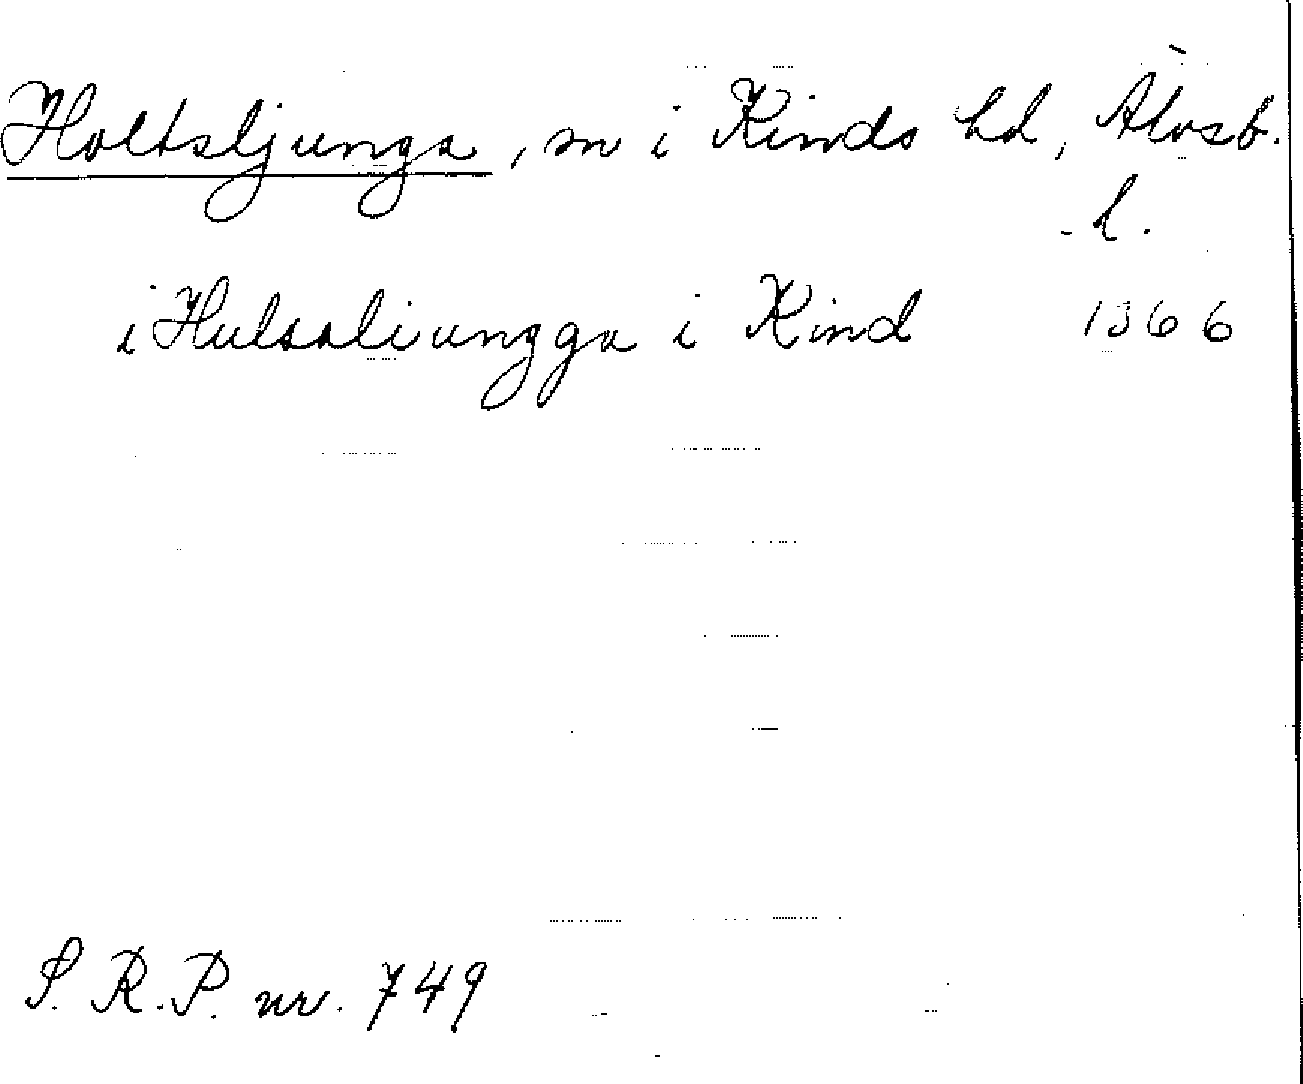 Holtsljunga, sn i Kinds hd, Älvsb.
l.
i Hulsaliungga i Kind 1366
S. R. P. nr. 749